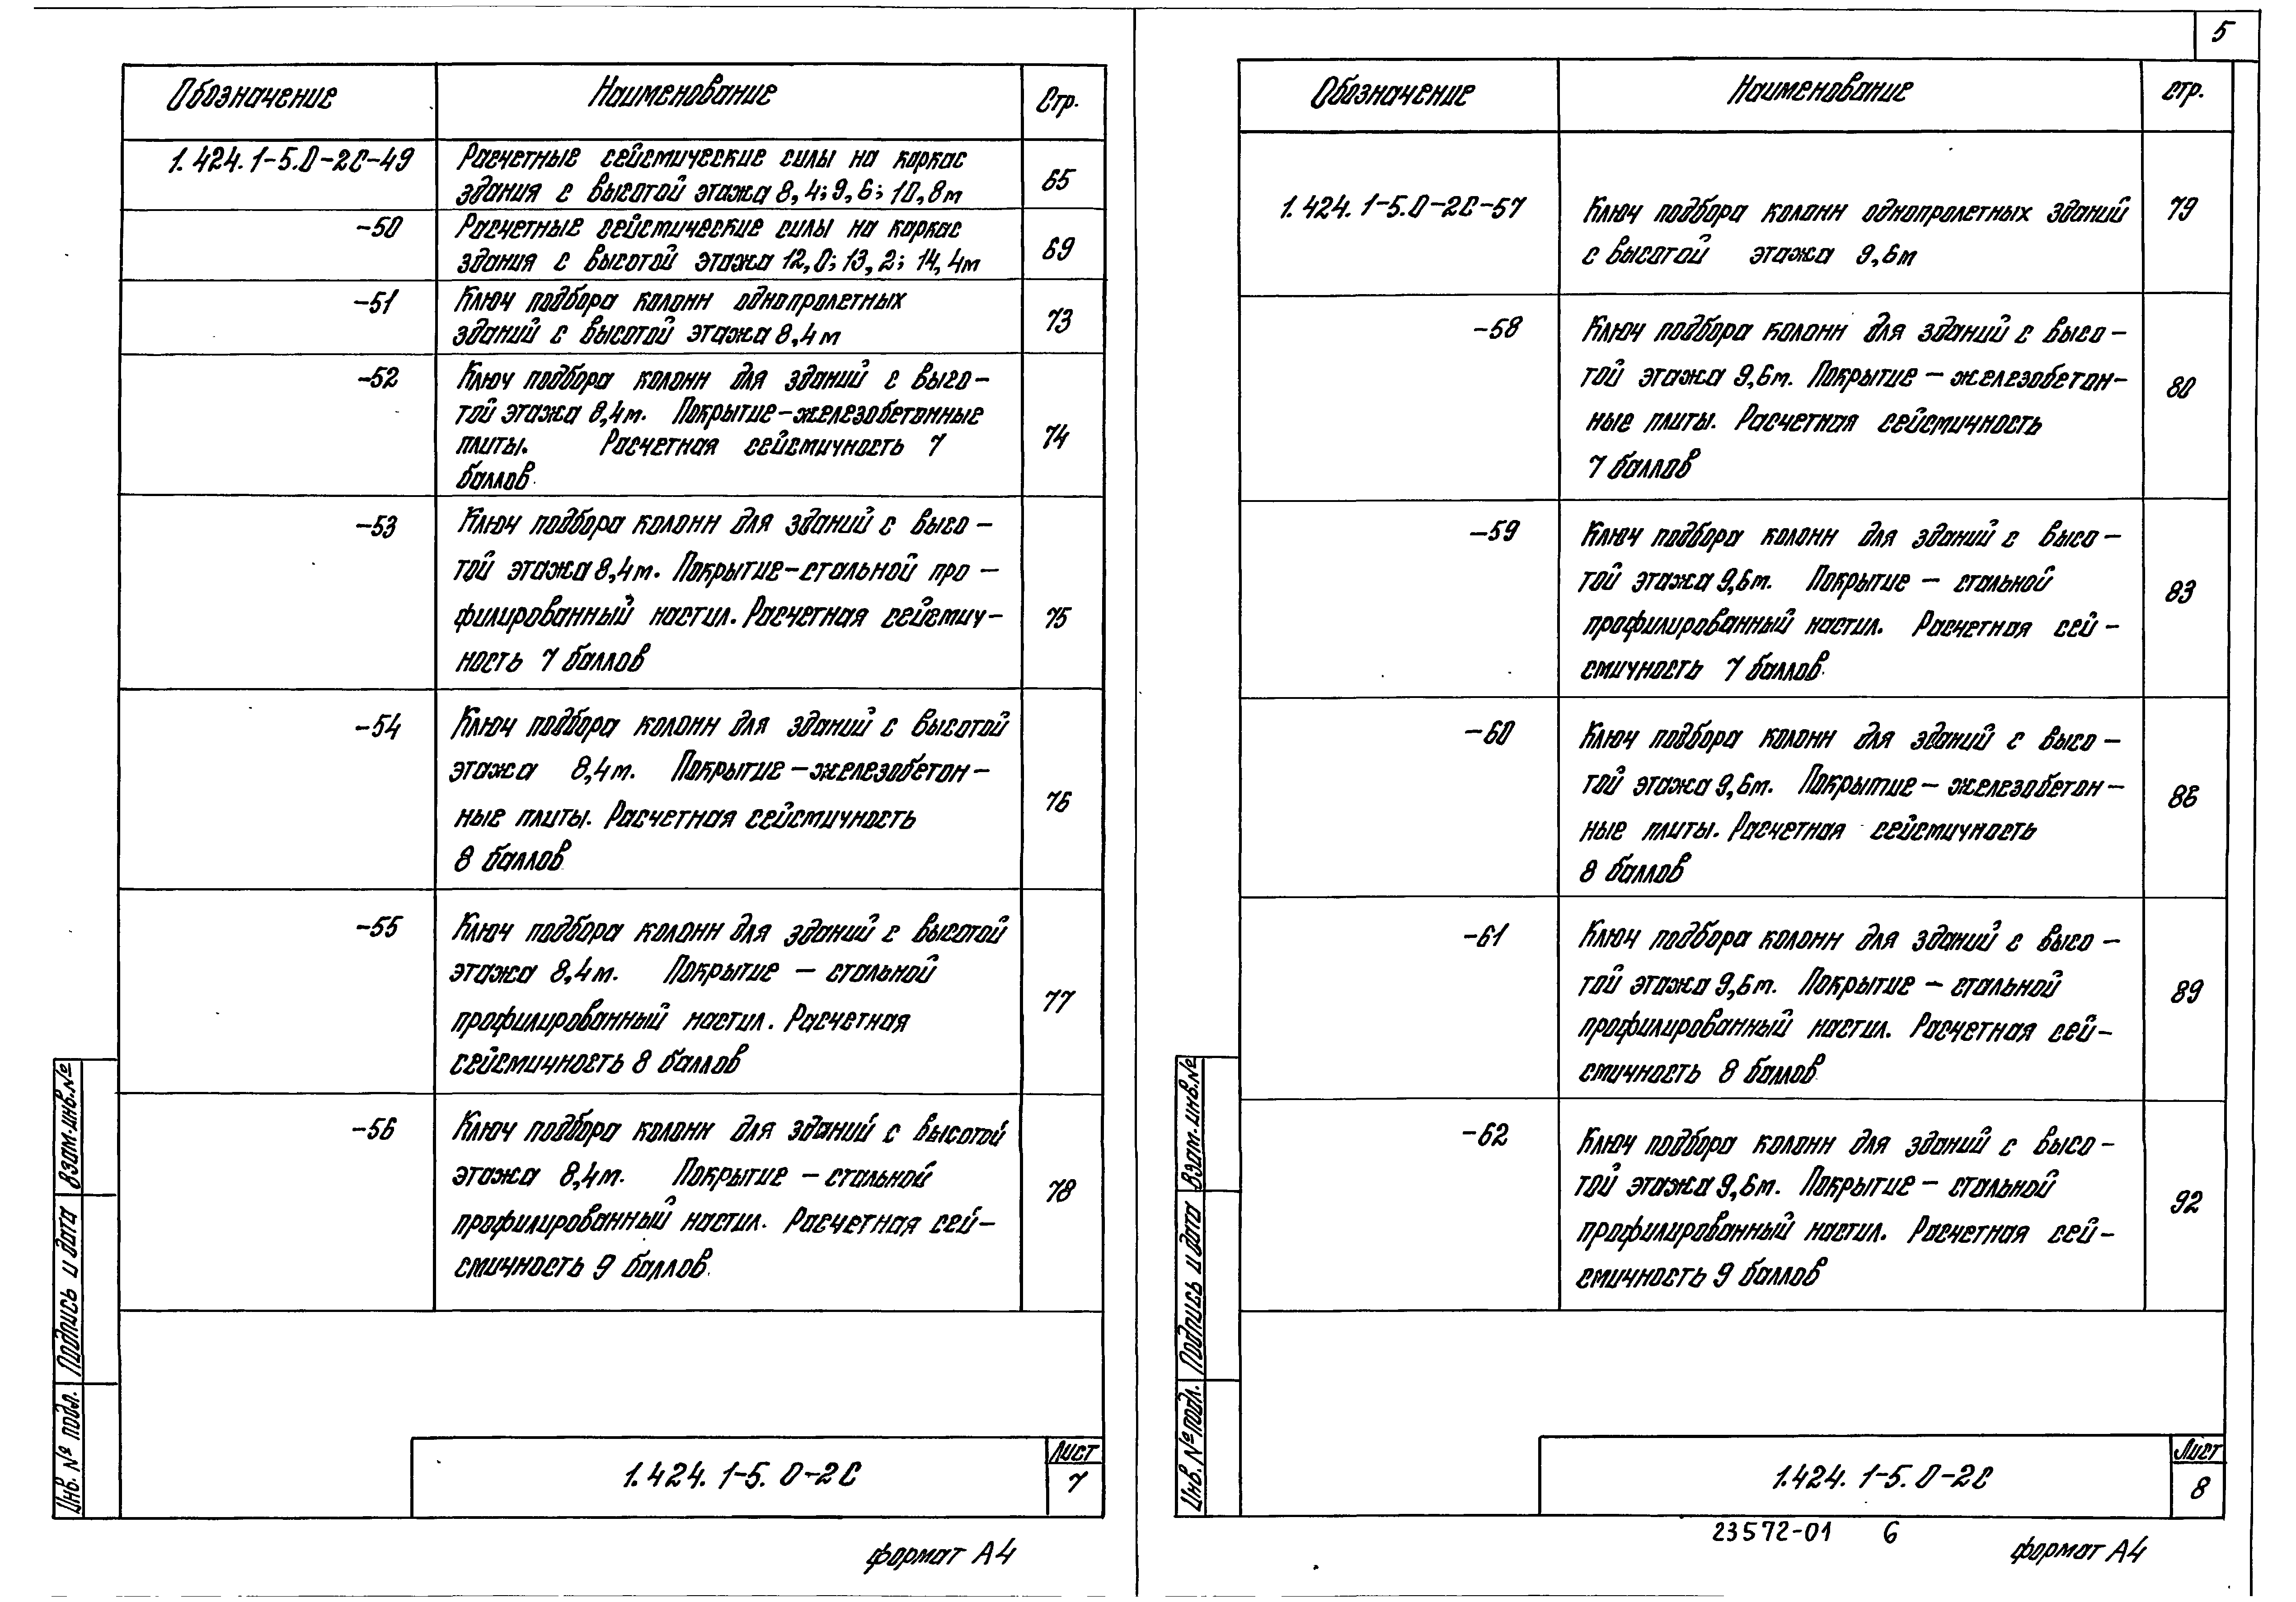 5
Обозначение Наименование Стр.
1.424.1-5.0-2С-49 Расчетные сейсмические силы на каркас
здания с высотой этажа 8,4; 9,6; 10,8м 65
-50 Расчетные сейсмические силы на каркас
здания с высотой этажа 12,0; 13,2; 14,4м 69
-51 Ключ подбора колонн однопролетных
зданий с высотой этажа 8,4м 73
-52 Ключ подбора колонн для зданий с высо-
той этажа 8,4м. Покрытие-железобетонные
плиты. Расчетная сейсмичность 7 74
баллов.
-53 Ключ подбора колонн для зданий с высо-
той этажа 8,4м. Покрытие-стальной про-
филированный настил. Расчетная сейсмич- 75
ность 7 баллов
-54 Ключ подбора колонн для зданий с высотой
этажа 8,4м. Покрытие-железобетон-
76
ные плиты. Расчетная сейсмичность
8 баллов
-55 Ключ подбора колонн для зданий с высотой
этажа 8,4м. Покрытие - стальной
77
профилированный настил. Расчетная
сейсмичность 8 баллов
-56 Ключ подбора колонн для зданий с высотой
этажа 8,4м. Покрытие - стальной
78
профилированный настил. Расчетная сей-
смичность 9 баллов.
Взам.инв.№
Подпись и дата
Инв. № подл.
1.424.1-5.0-2С
Лист
7
формат А4
Обозначение Наименование стр.
1.424.1-5.0-2С-57 Ключ подбора колонн однопролетных зданий 79
с высотой этажа 9,6м
-58 Ключ подбора колонн для зданий с высо-
той этажа 9,6м. Покрытие - железобетон- 80
ные плиты. Расчетная сейсмичность
7 баллов
-59 Ключ подбора колонн для зданий с высо-
той этажа 9,6м. Покрытие - стальной 83
профилированный настил. Расчетная сей-
смичность 7 баллов.
-60 Ключ подбора колонн для зданий с высо-
той этажа 9,6м. Покрытие - железобетон- 86
ные плиты. Расчетная сейсмичность
8 баллов
-61 Ключ подбора колонн для зданий с высо-
той этажа 9,6м. Покрытие - стальной 89
профилированный настил. Расчетная сей-
смичность 8 баллов
-62 Ключ подбора колонн для зданий с высо-
той этажа 9,6м. Покрытие - стальной 92
профилированный настил. Расчетная сей-
смичность 9 баллов
Взам.инв.№
Подпись и дата
Инв. № подл.
1.424.1-5.0-2С
Лист
8
23572-01 6
формат А4